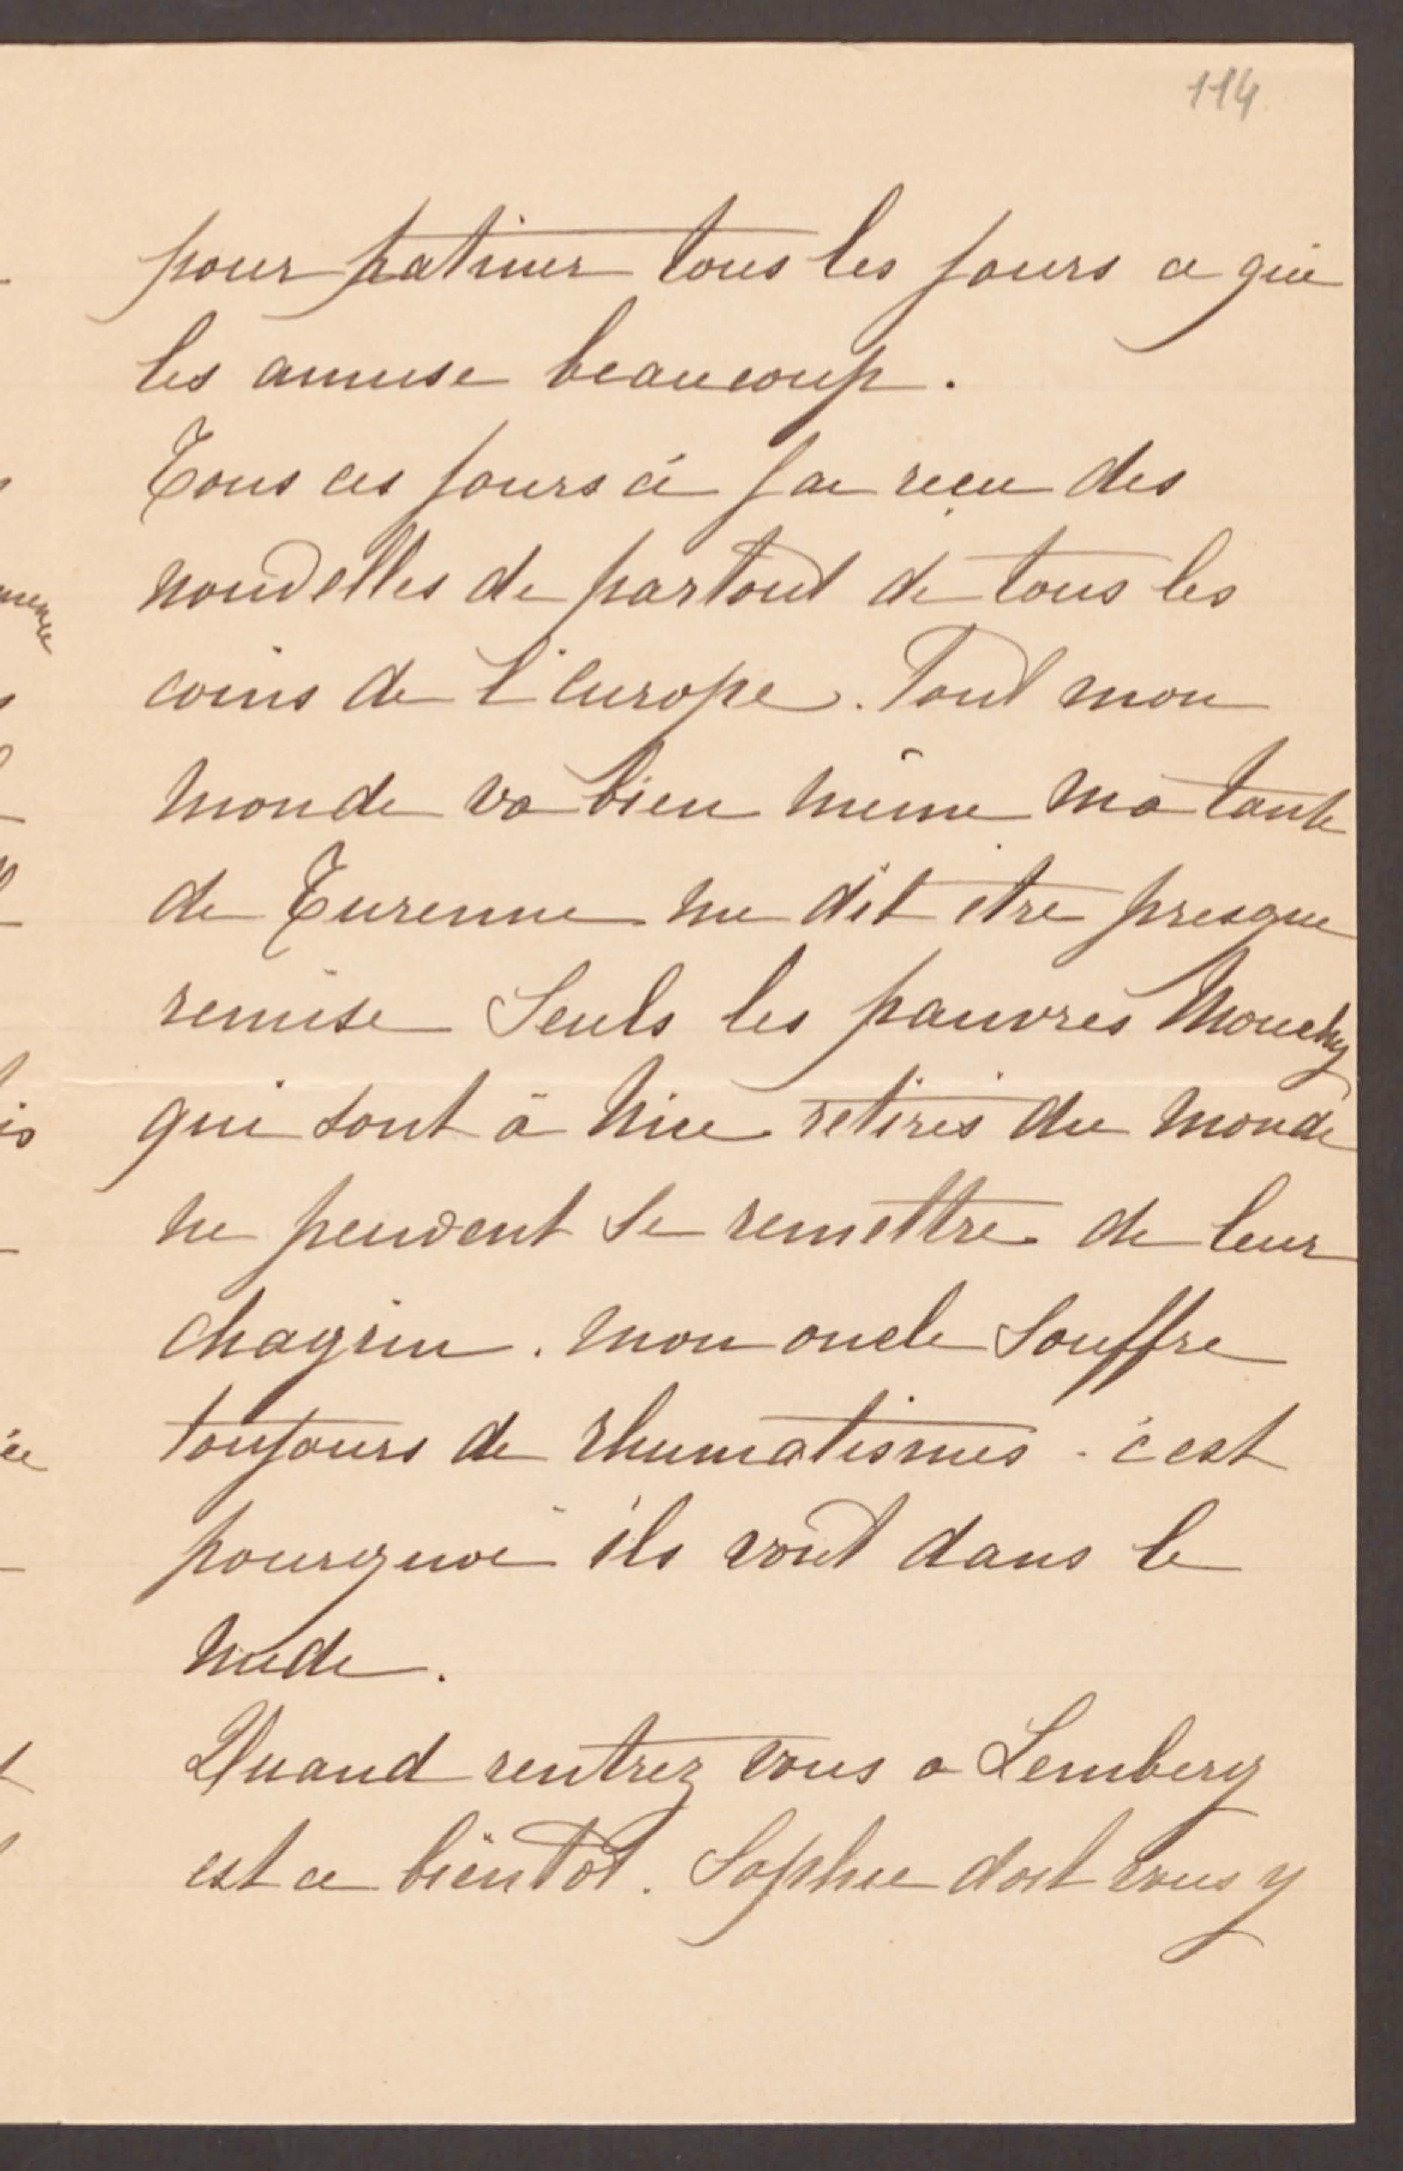 114
pour patiner tous les jours ce qui
les amuse beaucoup.
Tous ces jours ci j'ai reçu des
nouvelles de partout de tous les
coins de l'Europe. Tout mon
monde va bien même ma tante
de Turenne me dit être presque
remise Seuls les pauvres Mouchy
qui sont à Nice retirés du monde
ne peuvent se remettre de leur
chagrin. mon oncle souffre
toujours de rhumatismes. c'est
pourquoi ils vont dans le
midi.
Quand rentrez vous a Lemberg
est ce bientôt. Sophie doit vous y